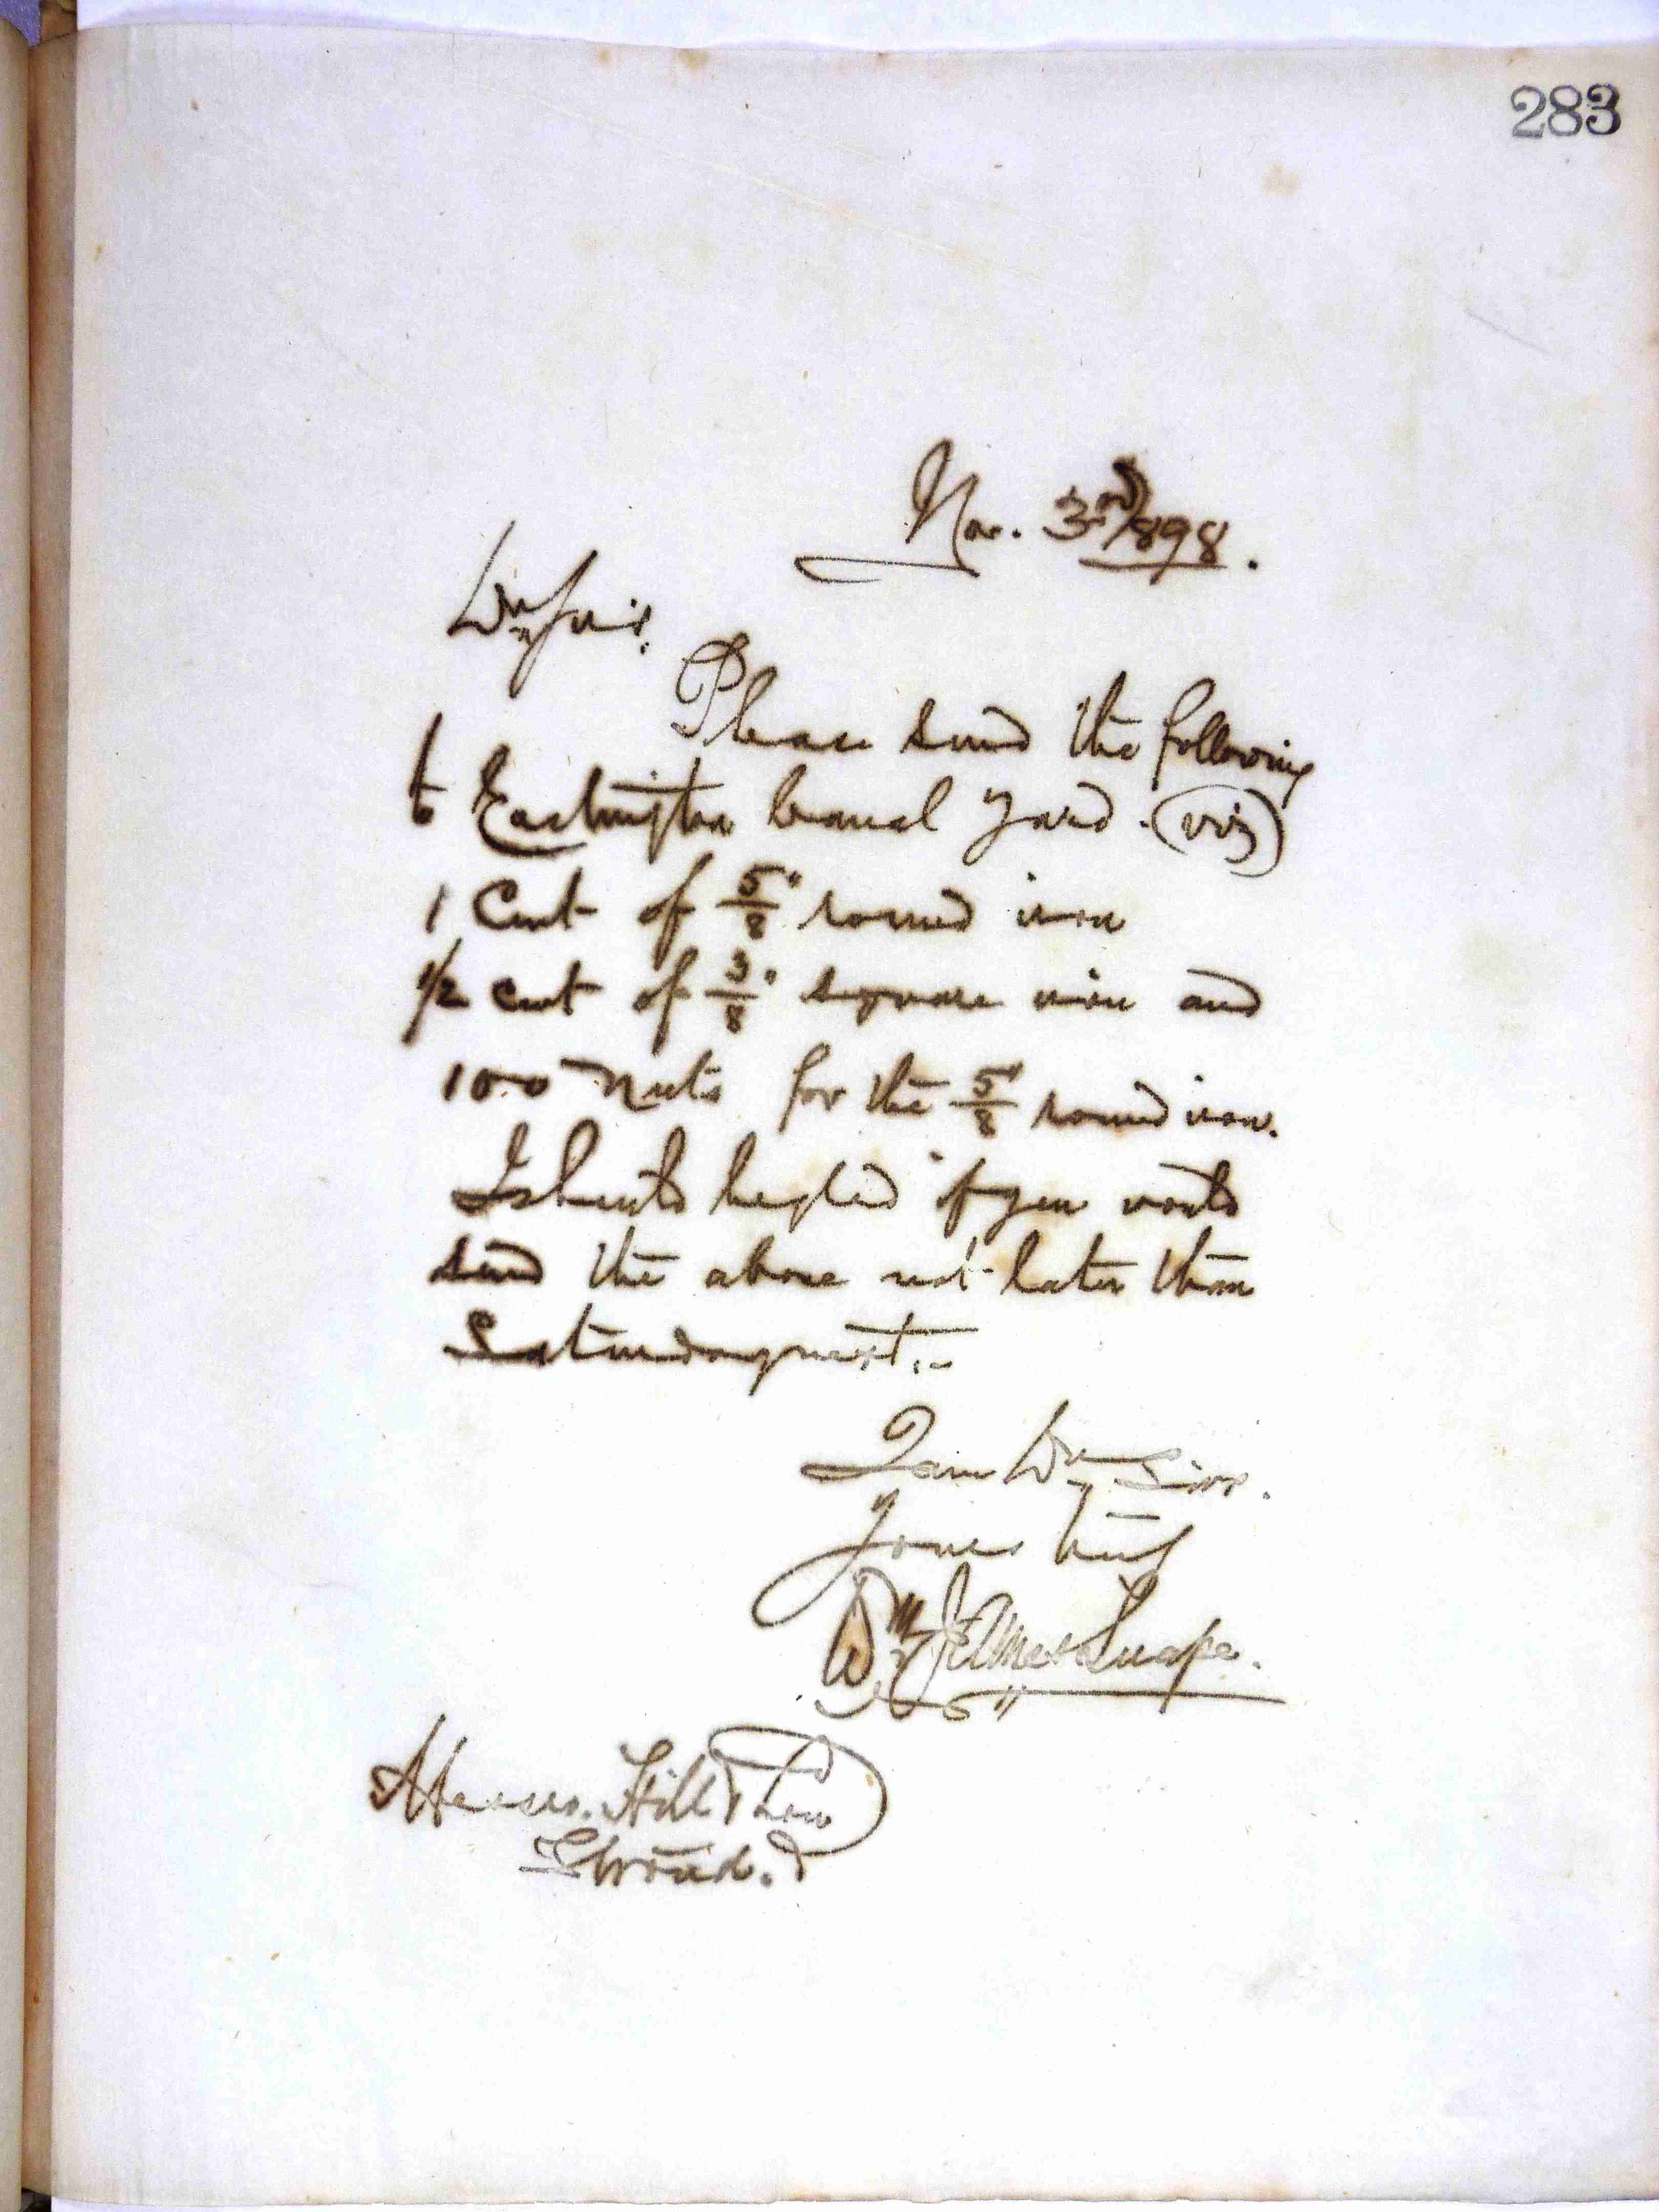 283
Nov. 3rd/898.
Dr Sirs.
Please send the following
to Eastington Canal Yard. (viz)
1 Cwt of 5/8" round iron
1/2 cwt of 3/8" square iron and
100 nuts for the 5/8" round iron.
I should be glad if you would
send the above not later than
Saturday next.
I am Dr Sirs.
Yours truly
Wm J Elmes Snape.
Messrs. Hill & Son
Stroud.